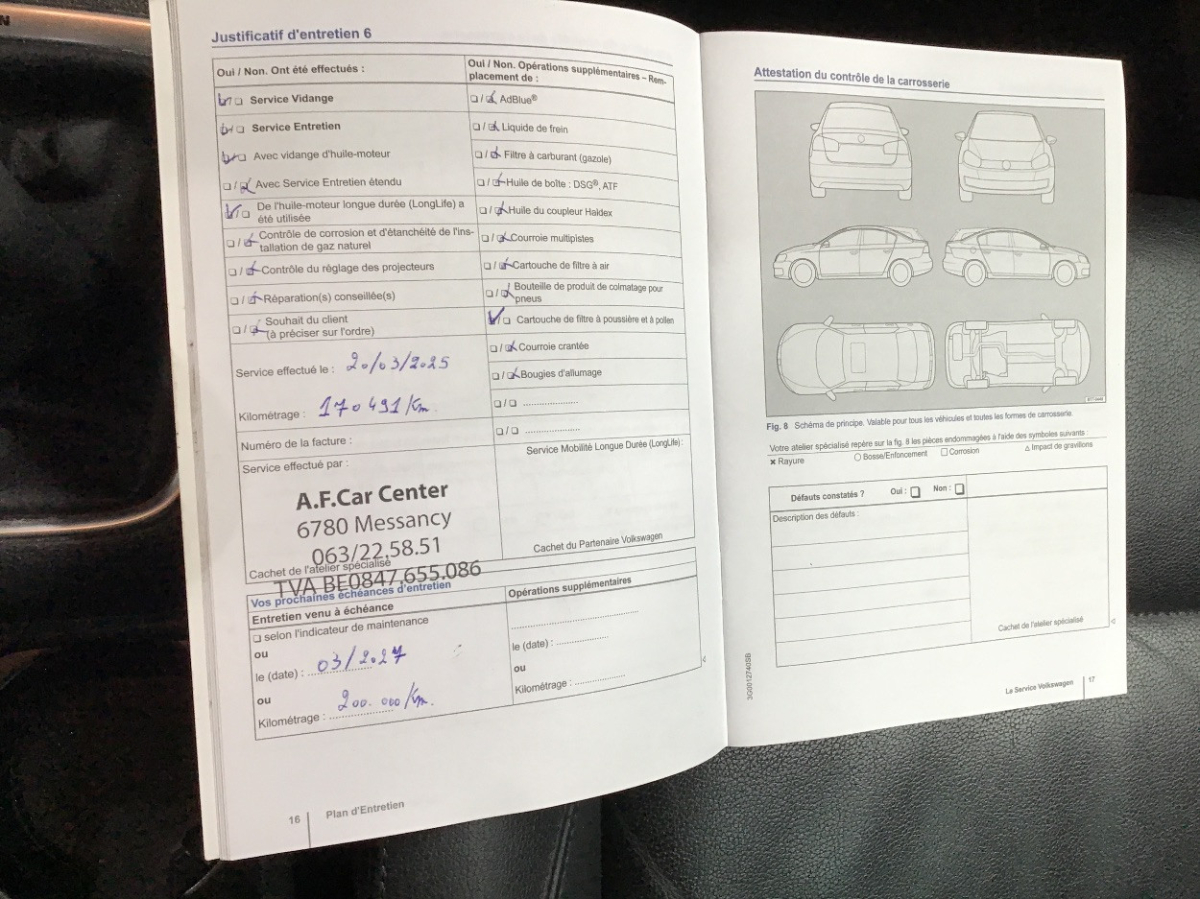 N
Justificatif d'entretien 6
Oui / Non. Ont été effectués :
Oui / Non. Opérations supplémentaires – Rem-
placement de :
Service Vidange
AdBlue®
Service Entretien
Liquide de frein
Avec vidange d'huile-moteur
Filtre à carburant (gazole)
Avec Service Entretien étendu
Huile de boîte : DSG®, ATF
De l'huile-moteur longue durée (LongLife) a
été utilisée
Huile du coupleur Haldex
Contrôle de corrosion et d'étanchéité de l'ins-
tallation de gaz naturel
Courroie multipistes
Contrôle du réglage des projecteurs
Cartouche de filtre à air
Réparation(s) conseillée(s)
Bouteille de produit de colmatage pour
pneus
Souhait du client
(à préciser sur l'ordre)
Cartouche de filtre à poussière et à pollen
Courroie crantée
Service effectué le : 20/03/2025
Bougies d'allumage
Kilométrage : 170491/Km
Numéro de la facture :
Service effectué par :
Service Mobilité Longue Durée (LongLife) :
A.F.Car Center
6780 Messancy
063/22.58.51
Cachet de l'atelier spécialisé
TVA BE0847.655.086
Cachet du Partenaire Volkswagen
Vos prochaines échéances d'entretien
Entretien venu à échéance
Opérations supplémentaires
selon l'indicateur de maintenance
ou
le (date) : 03/2027
le (date) :
ou
ou
Kilométrage : 200.000/Km.
Kilométrage :
16 Plan d'Entretien
Attestation du contrôle de la carrosserie
Fig. 8 Schéma de principe. Valable pour tous les véhicules et toutes les formes de carrosserie.
Votre atelier spécialisé repère sur la fig. 8 les pièces endommagées à l'aide des symboles suivants :
× Rayure ○ Bosse/Enfoncement □ Corrosion △ Impact de gravillons
Défauts constatés ? Oui : Non :
Description des défauts :
Cachet de l'atelier spécialisé
3G0012740SB
Le Service Volkswagen 17